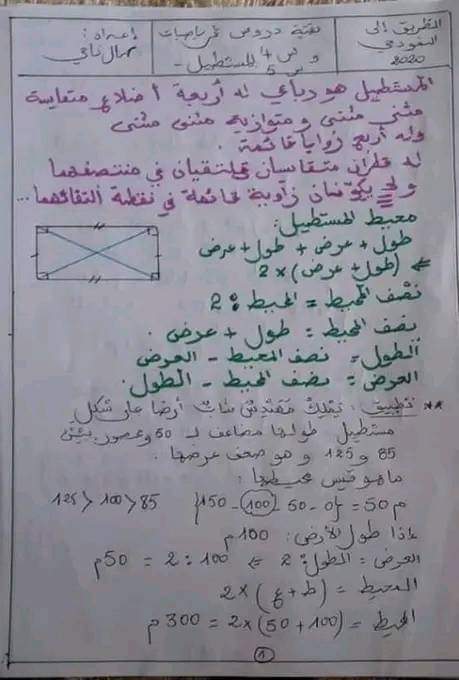 الطريق إلى
النموذجي
2020
بقية دروس في رياضيات
س 4 و س 5 المستطيل -
إعداد:
المستطيل هو رباعي له أربعة أضلاع متقايسة
مثنى مثنى و متوازية مثنى مثنى
وله أربع زوايا قائمة.
له قطران متقايسان يلتقيان في منتصفهما
و لا يكونان زاوية قائمة في نقطة التقائهما...
محيط المستطيل:
طول + عرض + طول + عرض
⇐ (طول + عرض) × 2
نصف المحيط = المحيط : 2
نصف المحيط = طول + عرض.
الطول = نصف المحيط - العرض
العرض = نصف المحيط - الطول.
** تطبيق: يملك مهندس شاب أرضا على شكل
مستطيل طولها مضاعف لـ 50 و محصور بين
85 و 125 و هو ضعف عرضها.
ما هو قيس محيطها:
م 50 = {0 - 50 - 100 - 150} 125 > 100 > 85
إذا طول الأرض: 100 م
العرض = الطول : 2 ⇐ 100 : 2 = 50 م
المحيط = (ط + ع) × 2
المحيط = (100 + 50) × 2 = 300 م
1